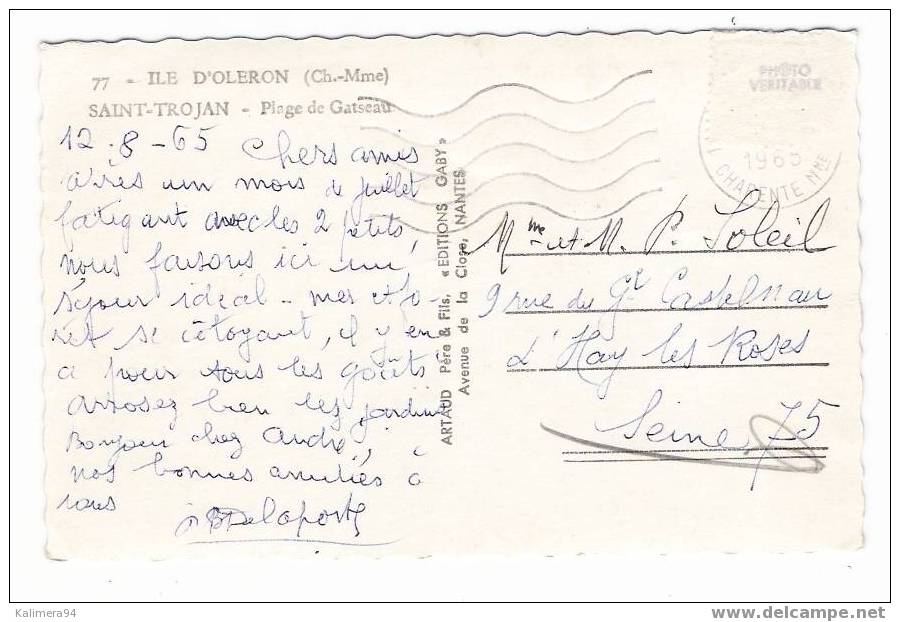 77 - ILE D'OLERON (Ch.-Mme)
SAINT-TROJAN - Plage de Gatseau
12-8-65 Chers amis
après un mois de juillet
fatigant avec les 2 petits,
nous faisons ici un
séjour idéal - mer et fo-
ret se côtoyant, il y en
a pour tous les goûts
arrosez bien les jardins
Bonjour chez André,
nos bonnes amitiés à
tous
Delaporte
ARTAUD Père & Fils, « EDITIONS GABY »
Avenue de la Close, NANTES
PHOTO
VERITABLE
1965
CHARENTE Mme
Mme et M. P. Soleil
9 rue du Gl Castelnau
L'Hay les Roses
Seine 75
Kalimera94
www.delcampe.net